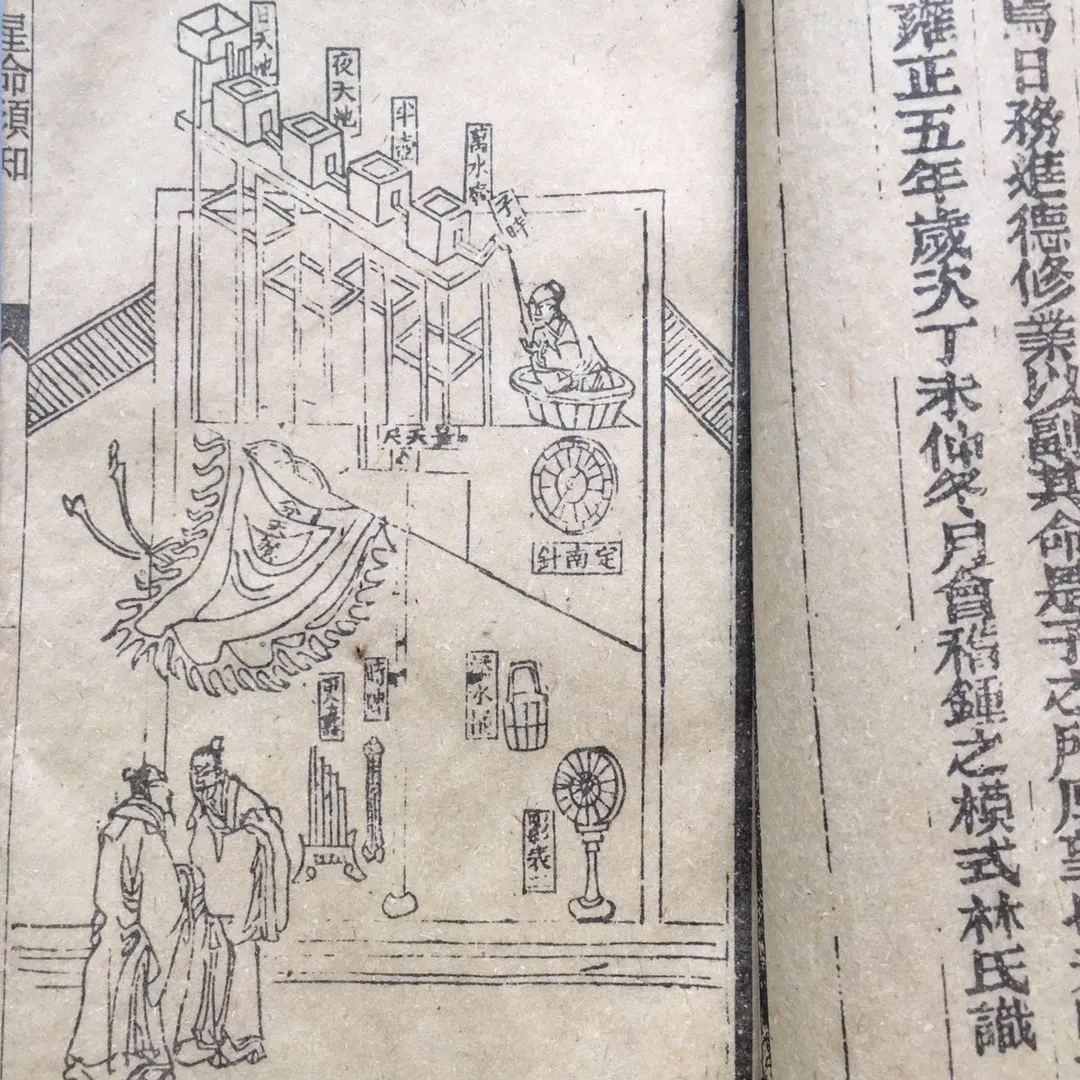 爲日務進德修業以副其命是子之所
雍正五年歲次丁未仲冬月會稽鍾之模式林氏識
日天池
夜天池
平壺
萬水壺
量天尺
定南針
時牌
更籌
影表
星命須知